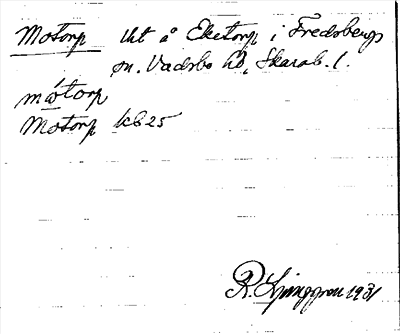 Motorp lht å Eketorp i Fredsbergs
sn. Vadsbo hd, Skarab. l.
mòtorp
Motorp kb 25
R. Ljunggren 1931